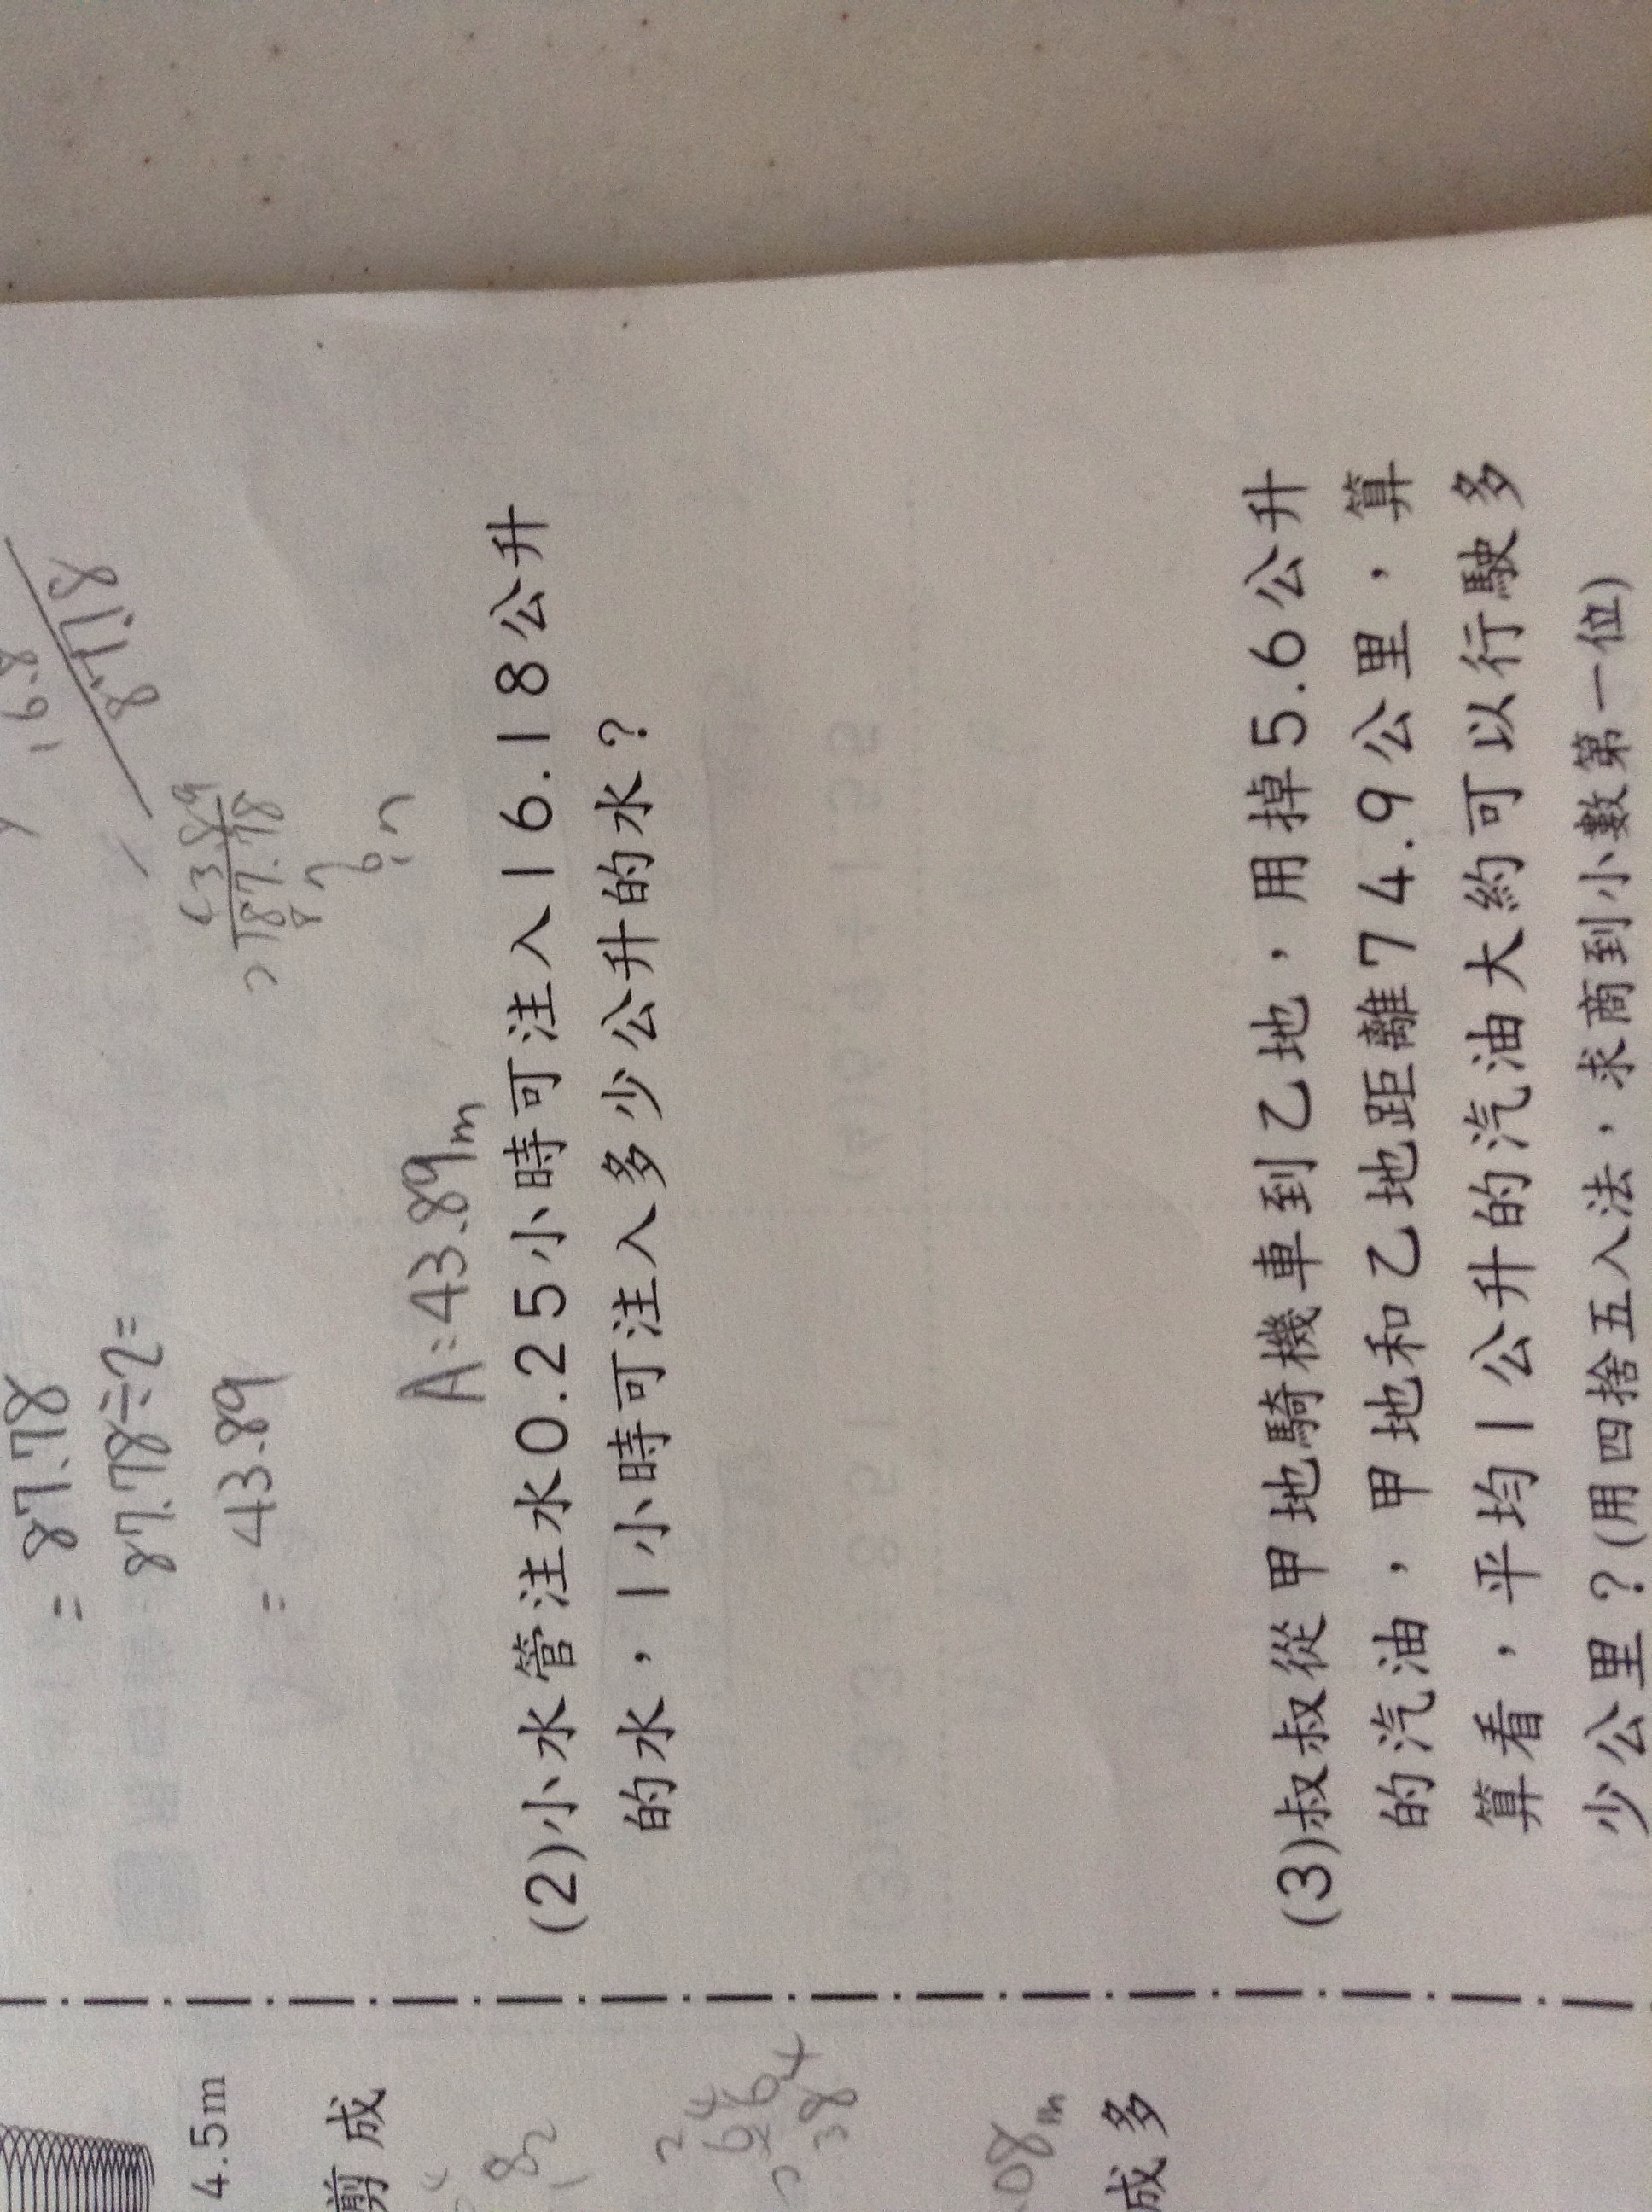 16.8
87.78
= 87.78
87.78÷2=
= 43.89
43.89
2 87.78
8
7
6
A:43.89m
(2)小水管注水0.25小時可注入16.18公升
的水，1小時可注入多少公升的水？
(3)叔叔從甲地騎機車到乙地，用掉5.6公升
的汽油，甲地和乙地距離74.9公里，算
算看，平均1公升的汽油大約可以行駛多
少公里？(用四捨五入法，求商到小數第一位)
4.5m
剪成
08m
成多